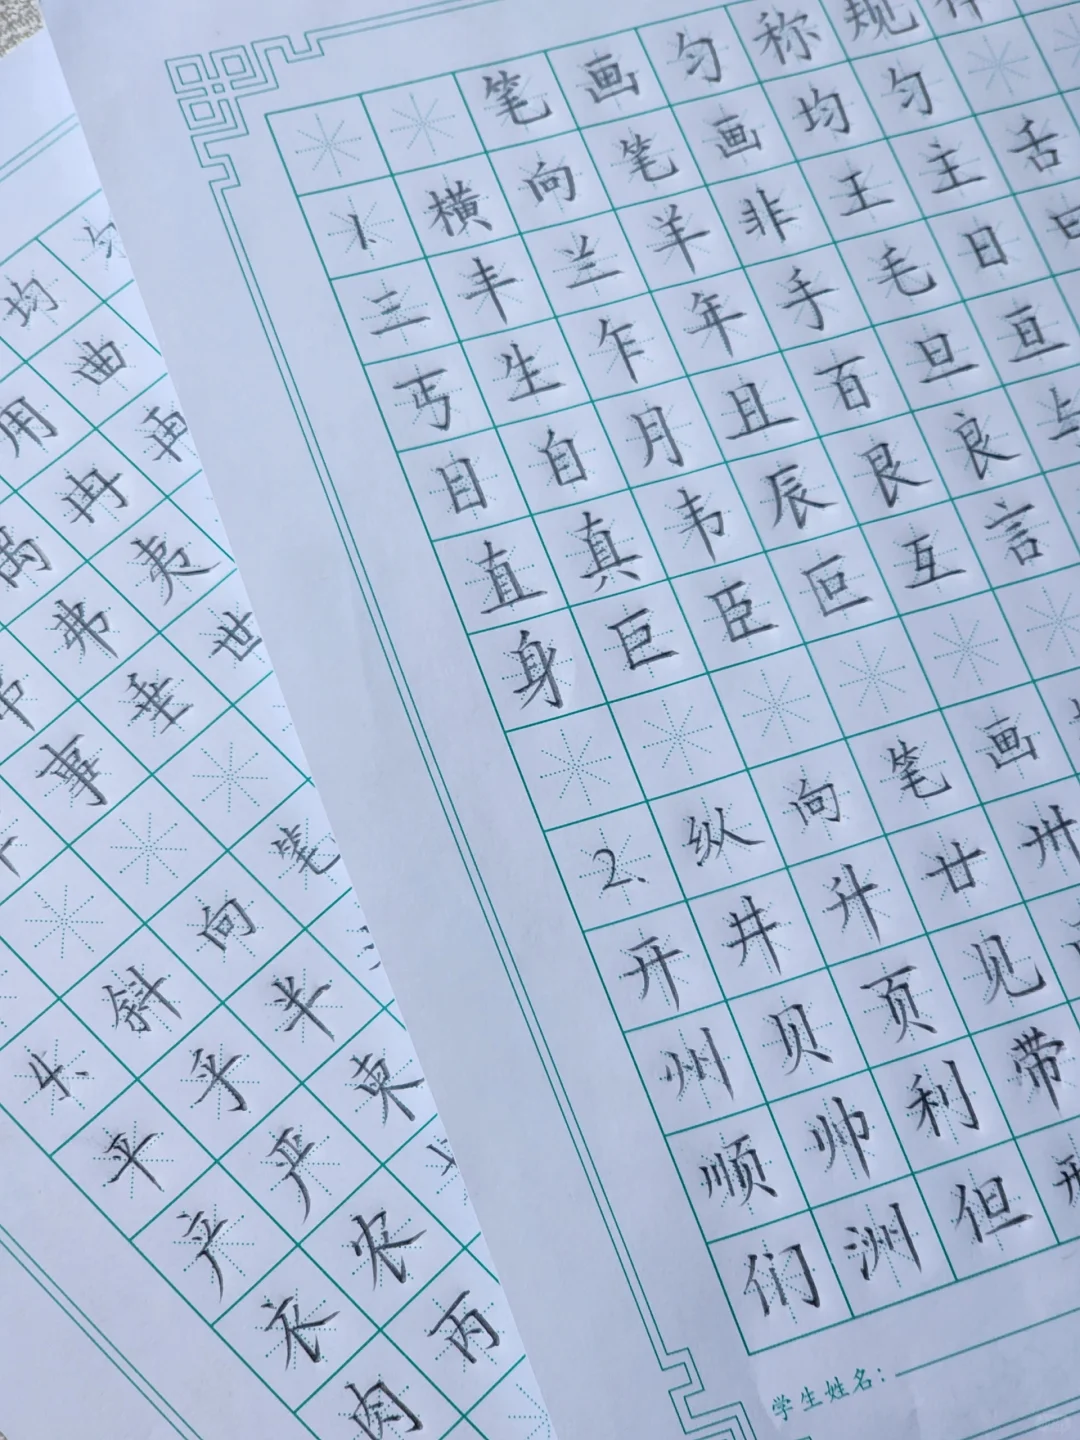 均匀
用曲
禹冉再
弗夷
事垂世
4、斜向笔
平乎半
产严柬
衣农
肉丙
笔画匀称规
1、横向笔画均匀
三丰兰羊非王主舌
丐生乍年手毛日曰
目自月且百旦亘
直真韦辰艮良
身巨臣叵互言
2、纵向笔画
开井升廿卅
州贝页见
顺帅利带
们洲但
学生姓名：